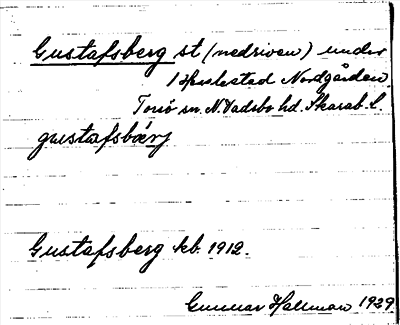 Gustafsberg st (nedriven) under
1 Hesslestad Nordgården
Torsö sn. N. Vadsbo hd. Skarab. L.
gustafsbærj
Gustafsberg kb. 1912.
Gunnar Hallman 1929